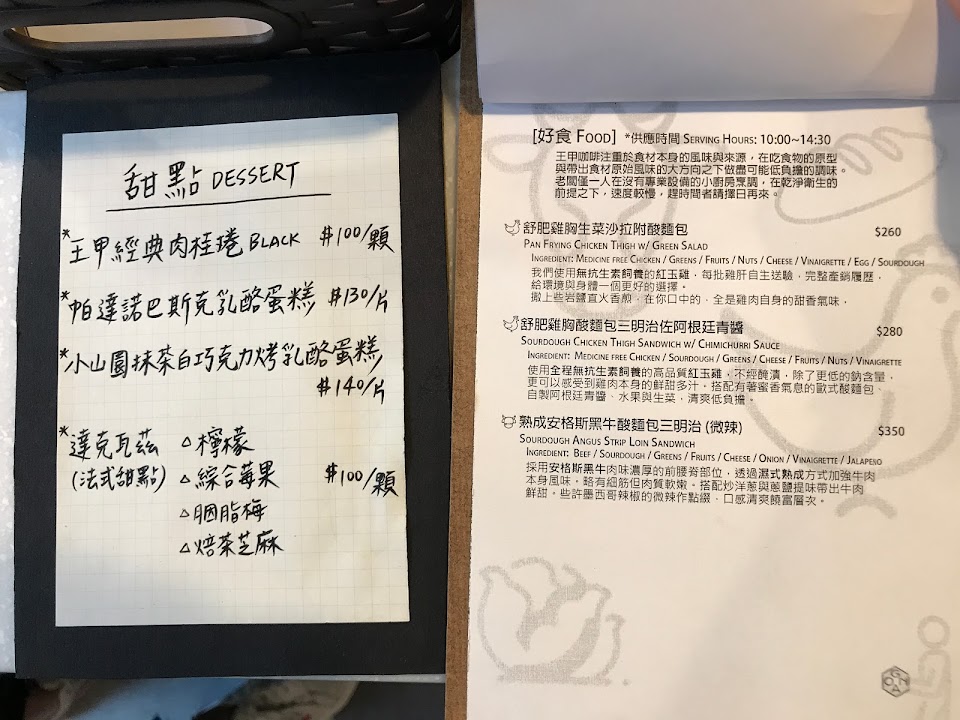 甜點 DESSERT
*王甲經典肉桂捲 BLACK $100/顆
*帕達諾巴斯克乳酪蛋糕 $130/片
*小山園抹茶白巧克力烤乳酪蛋糕
$140/片
*達克瓦茲 △檸檬
(法式甜點) △綜合莓果 $100/顆
△胭脂梅
△焙茶芝麻
[好食 FOOD] *供應時間 SERVING HOURS: 10:00~14:30
王甲咖啡注重於食材本身的風味與來源，在吃食物的原型
與帶出食材原始風味的大方向之下做盡可能低負擔的調味。
老闆僅一人在沒有專業設備的小廚房烹調，在乾淨衛生的
前提之下，速度較慢，趕時間者請擇日再來。
舒肥雞胸生菜沙拉附酸麵包 $260
PAN FRYING CHICKEN THIGH W/ GREEN SALAD
INGREDIENT: MEDICINE FREE CHICKEN / GREENS / FRUITS / NUTS / CHEESE / VINAIGRETTE / EGG / SOURDOUGH
我們使用無抗生素飼養的紅玉雞，每批雞肝自主送驗，完整產銷履歷，
給環境與身體一個更好的選擇。
撒上些岩鹽直火香煎，在你口中的，全是雞肉自身的甜香氣味，
舒肥雞胸酸麵包三明治佐阿根廷青醬 $280
SOURDOUGH CHICKEN THIGH SANDWICH W/ CHIMICHURRI SAUCE
INGREDIENT: MEDICINE FREE CHICKEN / SOURDOUGH / GREENS / CHEESE / FRUITS / NUTS / VINAIGRETTE
使用全程無抗生素飼養的高品質紅玉雞，不經醃漬，除了更低的鈉含量，
更可以感受到雞肉本身的鮮甜多汁。搭配有著蜜香氣息的歐式酸麵包、
自製阿根廷青醬、水果與生菜，清爽低負擔。
熟成安格斯黑牛酸麵包三明治 (微辣) $350
SOURDOUGH ANGUS STRIP LOIN SANDWICH
INGREDIENT: BEEF / SOURDOUGH / GREENS / FRUITS / CHEESE / ONION / VINAIGRETTE / JALAPENO
採用安格斯黑牛肉味濃厚的前腰脊部位，透過濕式熟成方式加強牛肉
本身風味。略有細筋但肉質軟嫩。搭配炒洋蔥與蔥鹽提味帶出牛肉
鮮甜。些許墨西哥辣椒的微辣作點綴，口感清爽饒富層次。